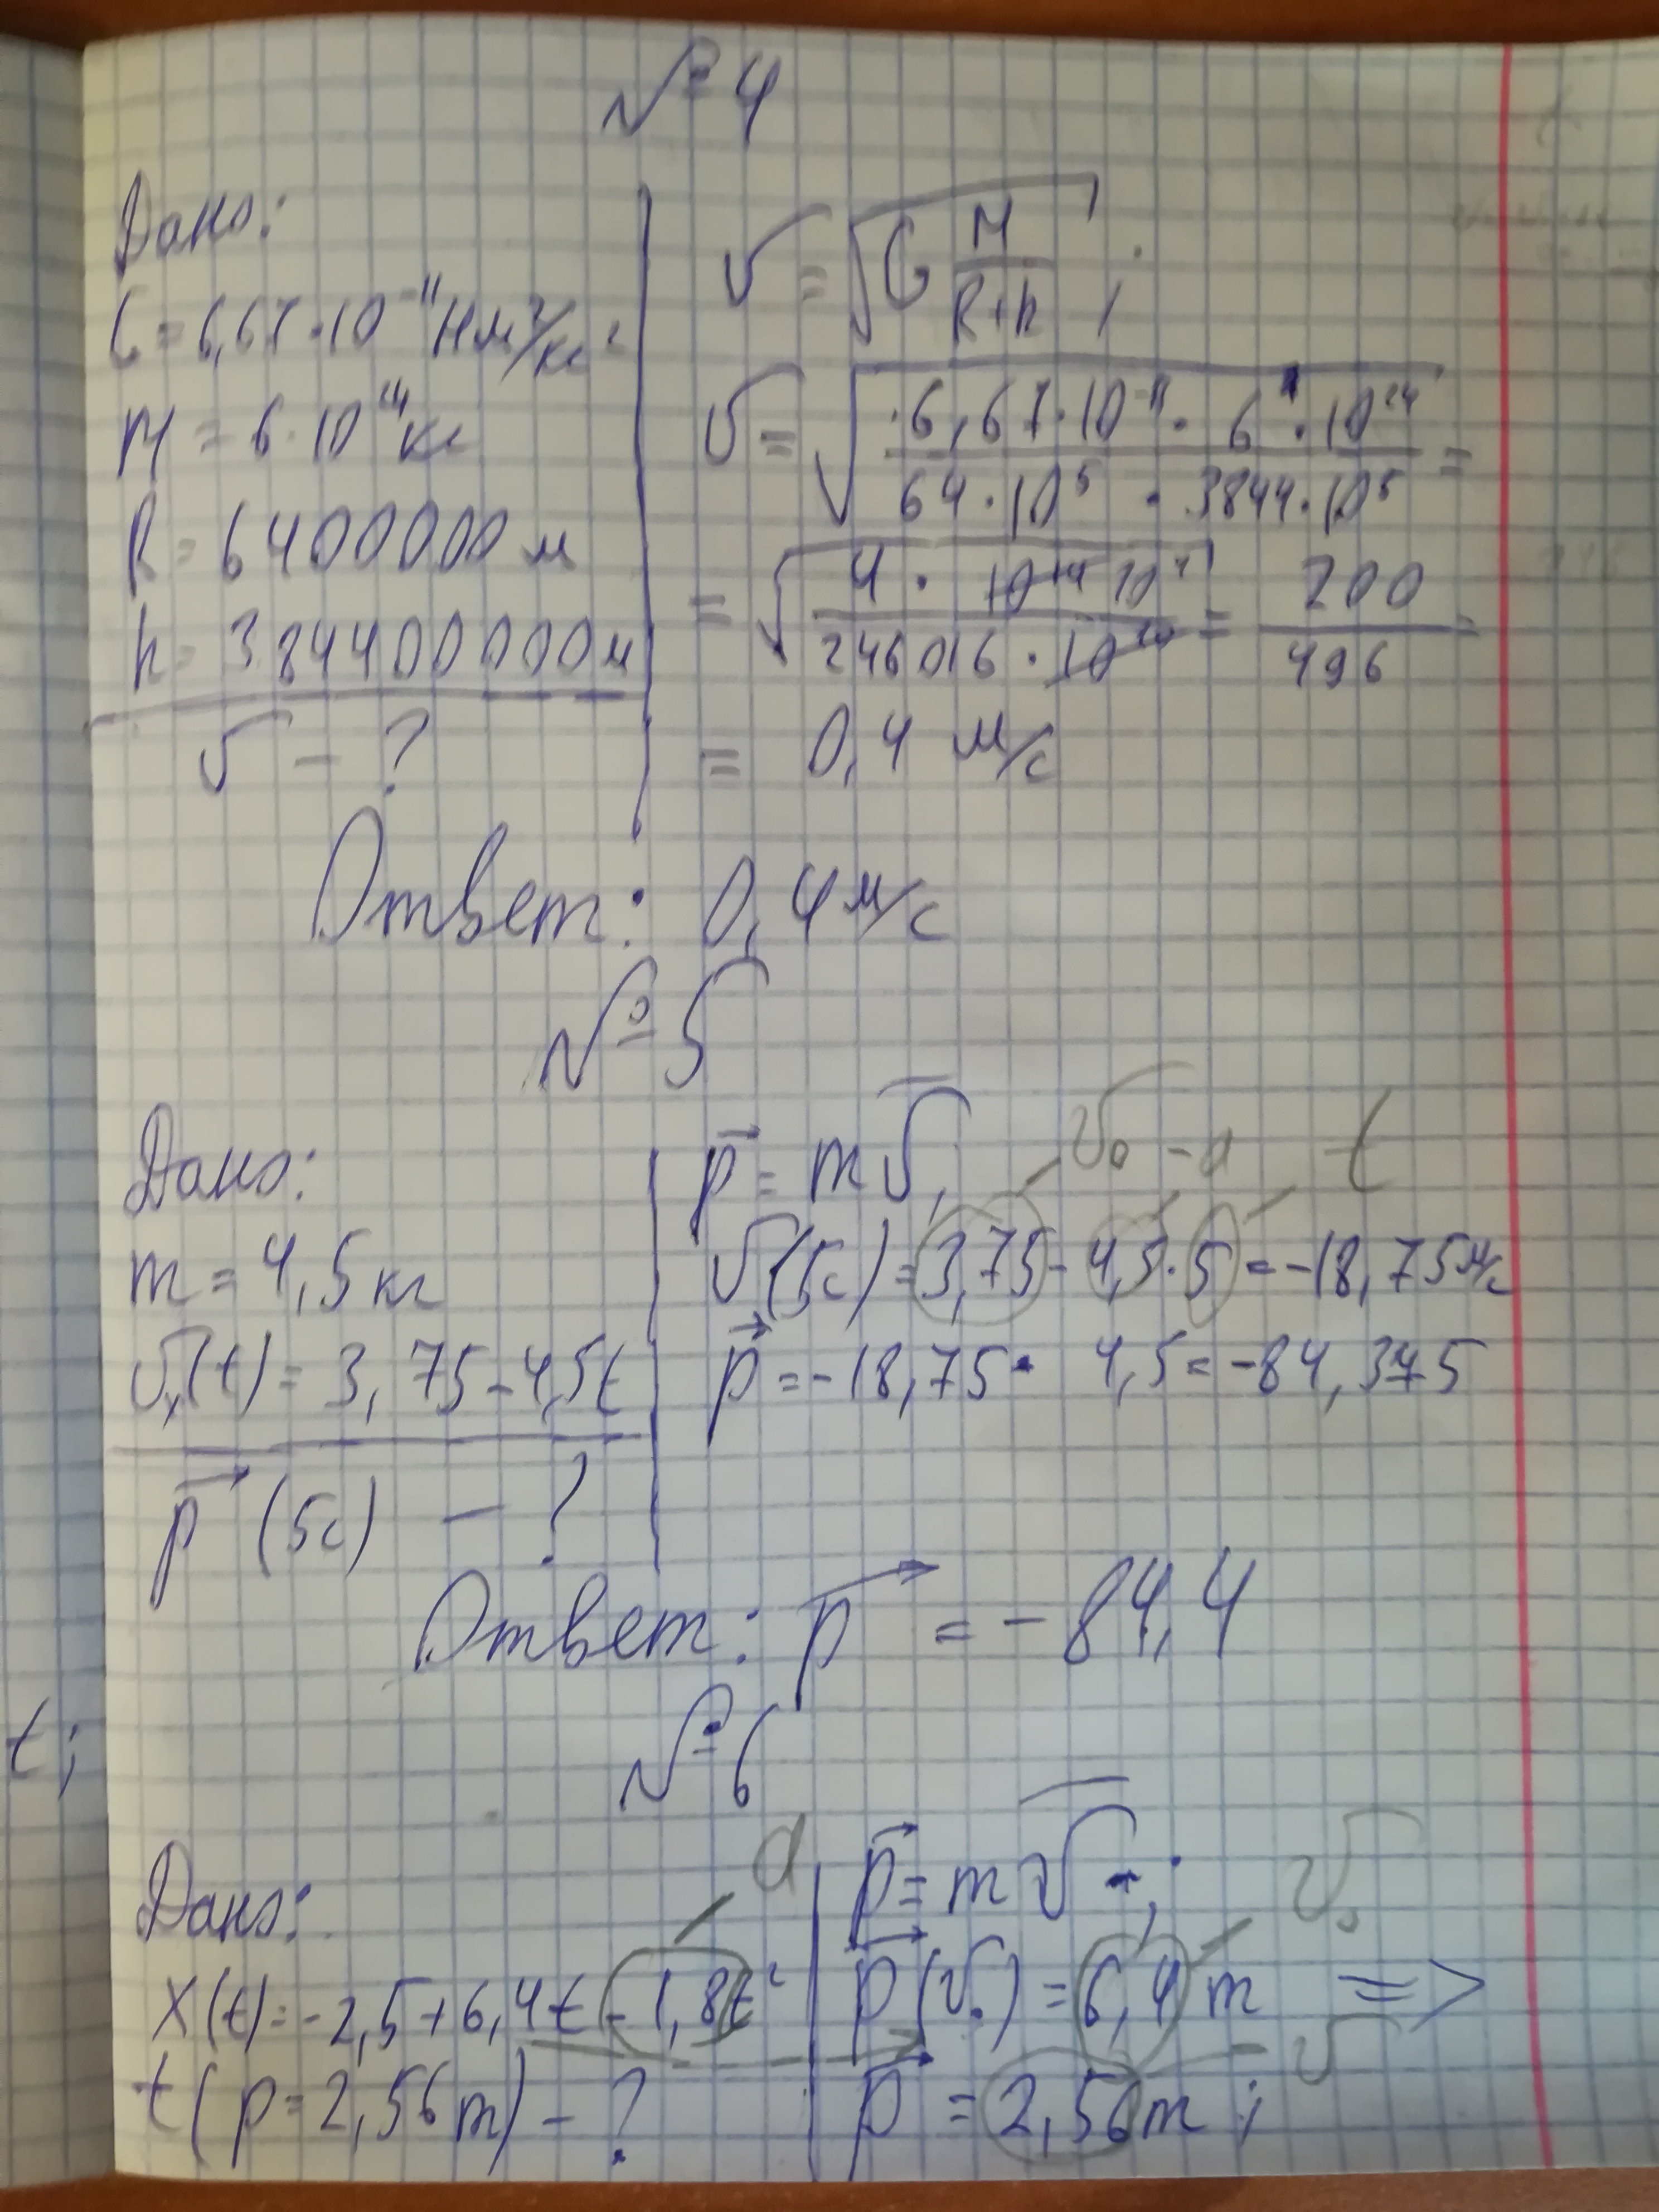 № 4
Дано:
G = 6,67 · 10⁻¹¹ Нм²/кг²
M = 6 · 10²⁴ кг
R = 6400000 м
h = 384400000 м
v - ?
v = √(G M/(R+h)) ;
v = √((6,67 · 10⁻¹¹ · 6 · 10²⁴)/(64 · 10⁵ · 3844 · 10⁵)) =
= √((4 · 10¹⁴ 10⁴)/(246016 · 10¹⁰)) = 200/496 =
= 0,4 м/с
Ответ: 0,4 м/с
№ 5
Дано:
m = 4,5 кг
vₓ(t) = 3,75 - 4,5t
p⃗ (5с) - ?
p⃗ = mv̅; v₀ -a t
v(5с) = 3,75 - 4,5 · 5 = -18,75 м/с
p⃗ = -18,75 · 4,5 = -84,375
Ответ: p⃗ = -84,4
№ 6
t;
Дано: a
x(t) = -2,5 + 6,4t - 1,8t²
t(p = 2,56m) - ?
p⃗ = mv̅ ; v₀
p⃗(v₀) = 6,4m =>
p⃗ = 2,56m ; v